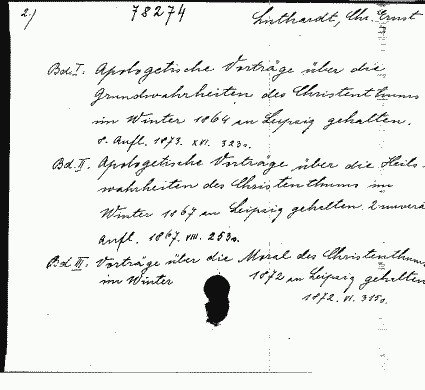 2.) 78274 Luthardt, Chr. Ernst
Bd. I. Apologetische Vorträge über die
Grundwahrheiten des Christenthums
im Winter 1864 zu Leipzig gehalten.
8. Aufl. 1873. XVI. 323 S.
Bd. II. Apologetische Vorträge über die Heils-
wahrheiten des Christenthums im
Winter 1867 zu Leipzig gehalten. 2 unverä
Aufl. 1867. VIII. 253 S.
Bd III. Vorträge über die Moral des Christenthums
im Winter 1872 zu Leipzig gehalten
1872. VI. 315 S.